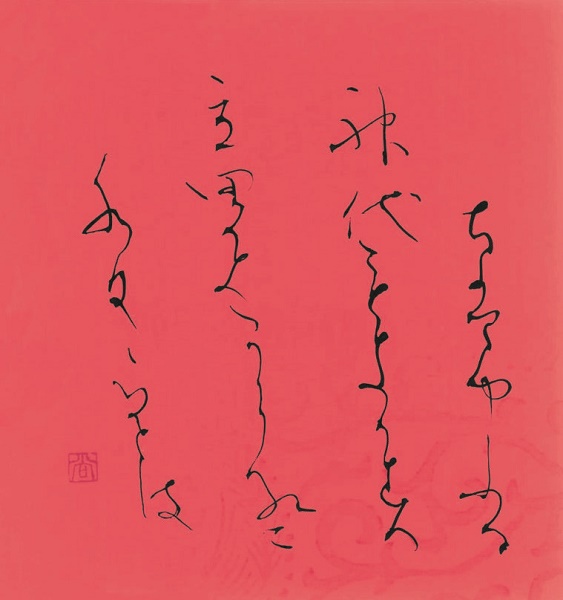 ちはやふる
神代もきかす
立田かはからくれなゐに
水くゝるとは